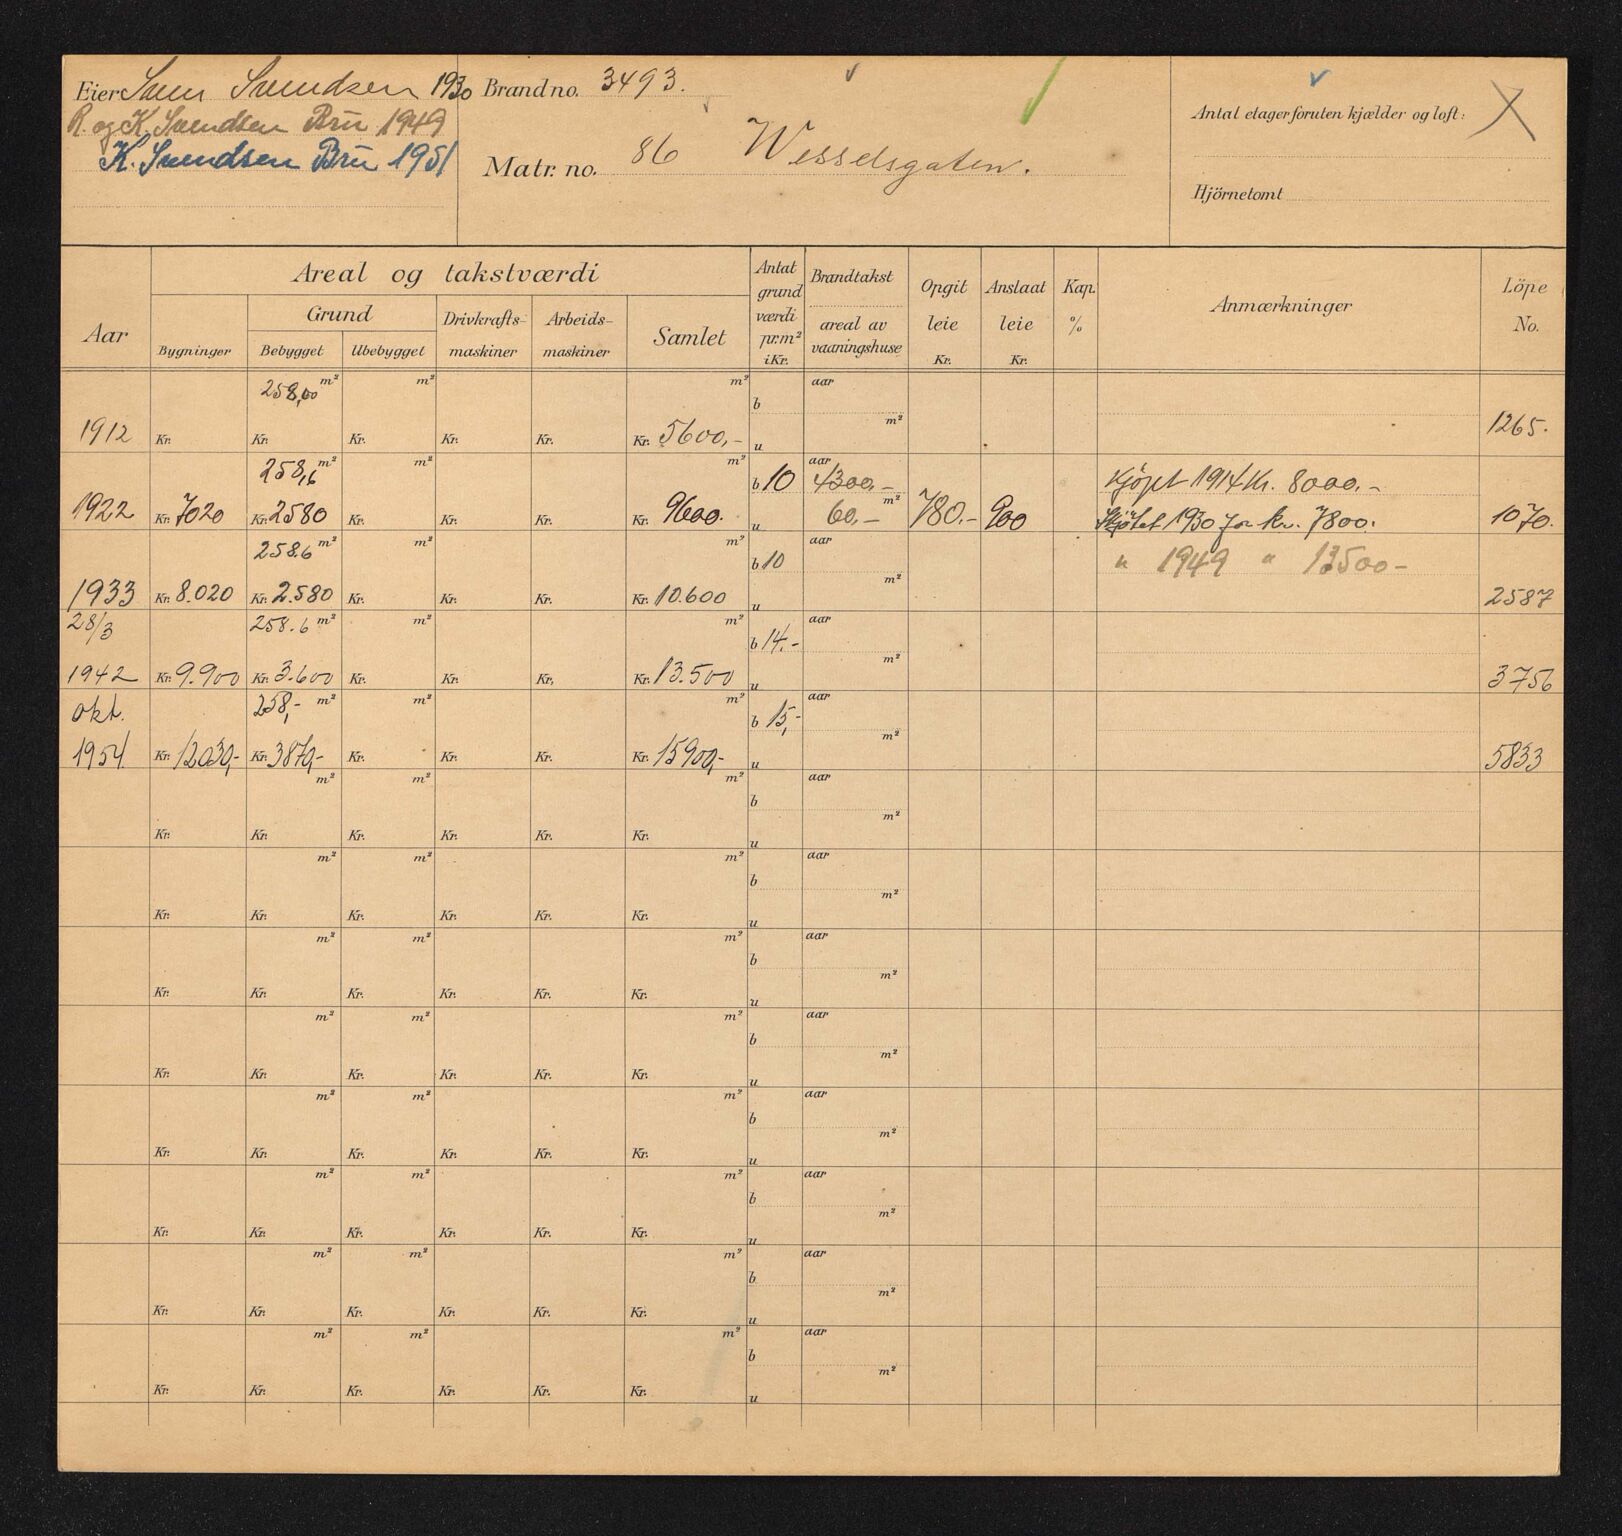 Eier Svend Svendsen 1930
R. og K. Svendsen Bru 1949
K. Svendsen Bru 1951
Brandno. 3493.
Matr. no. 86 Wesselsgaten.
Antal etager foruten kjælder og loft:
Hjörnetomt
Aar
Areal og takstværdi
Bygninger
Grund
Bebygget Ubebygget
Drivkrafts-maskiner
Arbeids-maskiner
Samlet
Antat grund værdi pr. m² i Kr.
Brandtakst
areal av vaaningshuse
Opgit leie Kr.
Anslaat leie Kr.
Kap. %
Anmærkninger
Löpe No.
258,00 m² m² m² aar
b m²
1912 Kr. Kr. Kr. Kr. Kr. Kr. 5600,- u 1265.
258,6 m² m² m² aar
b 10 4300.- m² Kjöpt 1914 Kr. 8000.-
1922 Kr. 7020 Kr. 2580 Kr. Kr. Kr. Kr. 9600. u 60,- 780.- 900 Skjötet 1930 for kr. 7800. 1070.
258.6 m² m² m² aar
b 10 m² " 1949 " 13500-
1933 Kr. 8.020 Kr. 2.580 Kr. Kr. Kr. Kr. 10.600 u 2587
28/3 258.6 m² m² m² aar
b 14.- m²
1942 Kr. 9.900 Kr. 3.600 Kr. Kr. Kr. Kr. 13.500 u 3756
okt. 258,- m² m² m² aar
b 15,- m²
1954 Kr. 12030,- Kr. 3870,- Kr. Kr. Kr. Kr. 15900,- u 5833
m² m² m² aar
b m²
Kr. Kr. Kr. Kr. Kr. Kr. u
m² m² m² aar
b m²
Kr. Kr. Kr. Kr. Kr. Kr. u
m² m² m² aar
b m²
Kr. Kr. Kr. Kr. Kr. Kr. u
m² m² m² aar
b m²
Kr. Kr. Kr. Kr. Kr. Kr. u
m² m² m² aar
b m²
Kr. Kr. Kr. Kr. Kr. Kr. u
m² m² m² aar
b m²
Kr. Kr. Kr. Kr. Kr. Kr. u
m² m² m² aar
b m²
Kr. Kr. Kr. Kr. Kr. Kr. u
m² m² m² aar
b m²
Kr. Kr. Kr. Kr. Kr. Kr. u